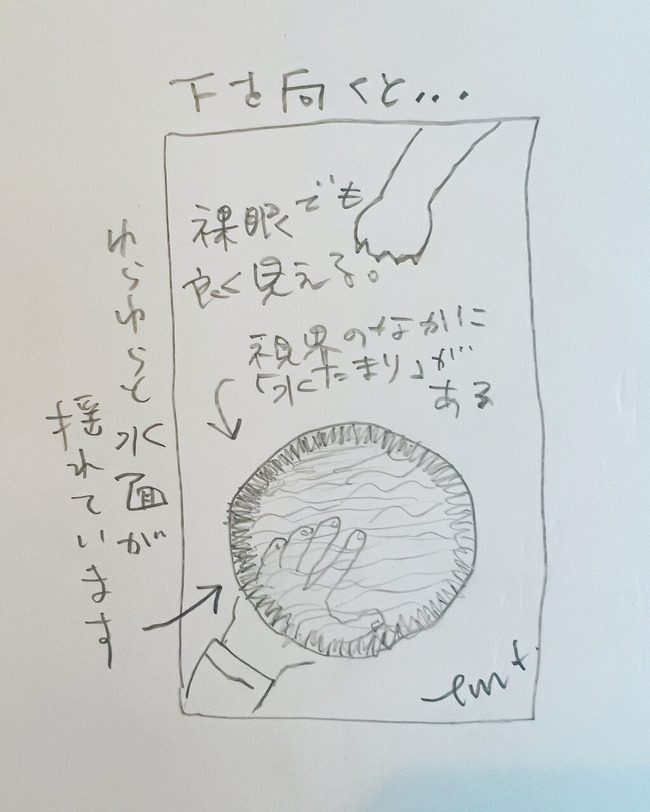 下を向くと...
裸眼でも
良く見える。
視界のなかに
「水たまり」が
ある
ゆらゆらと水面が
揺れています